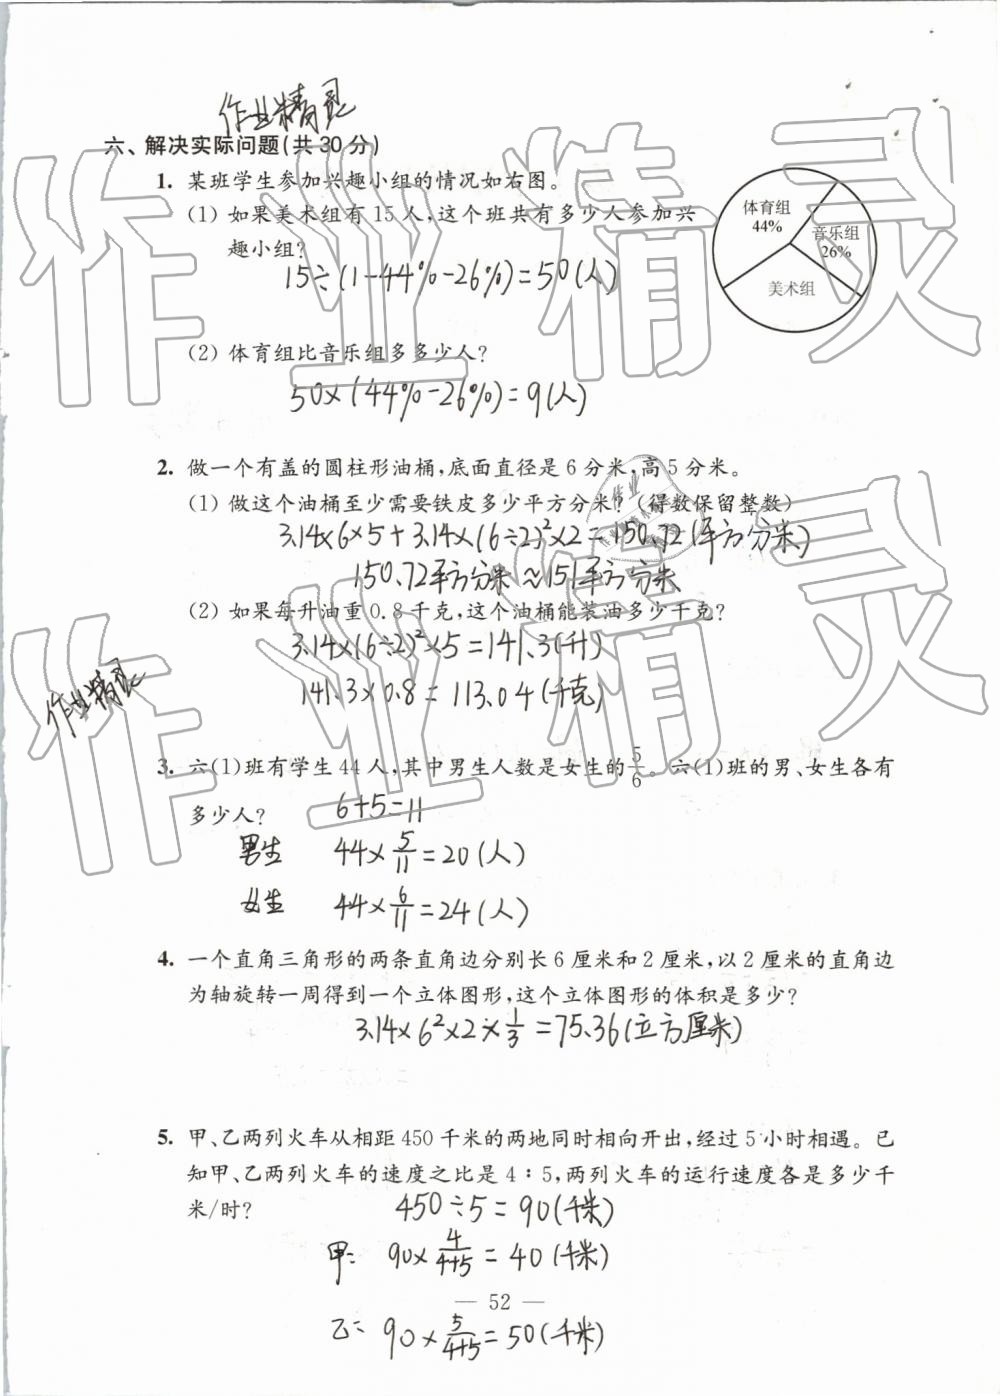 作业精灵
六、解决实际问题(共30分)
1. 某班学生参加兴趣小组的情况如右图。
(1) 如果美术组有15人,这个班共有多少人参加兴
趣小组?
15÷(1-44%-26%)=50(人)
体育组
44%
音乐组
26%
美术组
(2) 体育组比音乐组多多少人?
50×(44%-26%)=9(人)
2. 做一个有盖的圆柱形油桶,底面直径是6分米,高5分米。
(1) 做这个油桶至少需要铁皮多少平方分米?(得数保留整数)
3.14×6×5+3.14×(6÷2)²×2=150.72(平方分米)
150.72平方分米≈151平方分米
(2) 如果每升油重0.8千克,这个油桶能装油多少千克?
3.14×(6÷2)²×5=141.3(升)
141.3×0.8=113.04(千克)
作业精灵
3. 六(1)班有学生44人,其中男生人数是女生的5/6。六(1)班的男、女生各有
多少人?
6+5=11
男生 44×5/11=20(人)
女生 44×6/11=24(人)
4. 一个直角三角形的两条直角边分别长6厘米和2厘米,以2厘米的直角边
为轴旋转一周得到一个立体图形,这个立体图形的体积是多少?
3.14×6²×2×1/3=75.36(立方厘米)
5. 甲、乙两列火车从相距450千米的两地同时相向开出,经过5小时相遇。已
知甲、乙两列火车的速度之比是4:5,两列火车的运行速度各是多少千
米/时?
450÷5=90(千米)
甲: 90×4/4+5=40(千米)
— 52 —
乙: 90×5/4+5=50(千米)
作业精灵
作业精灵